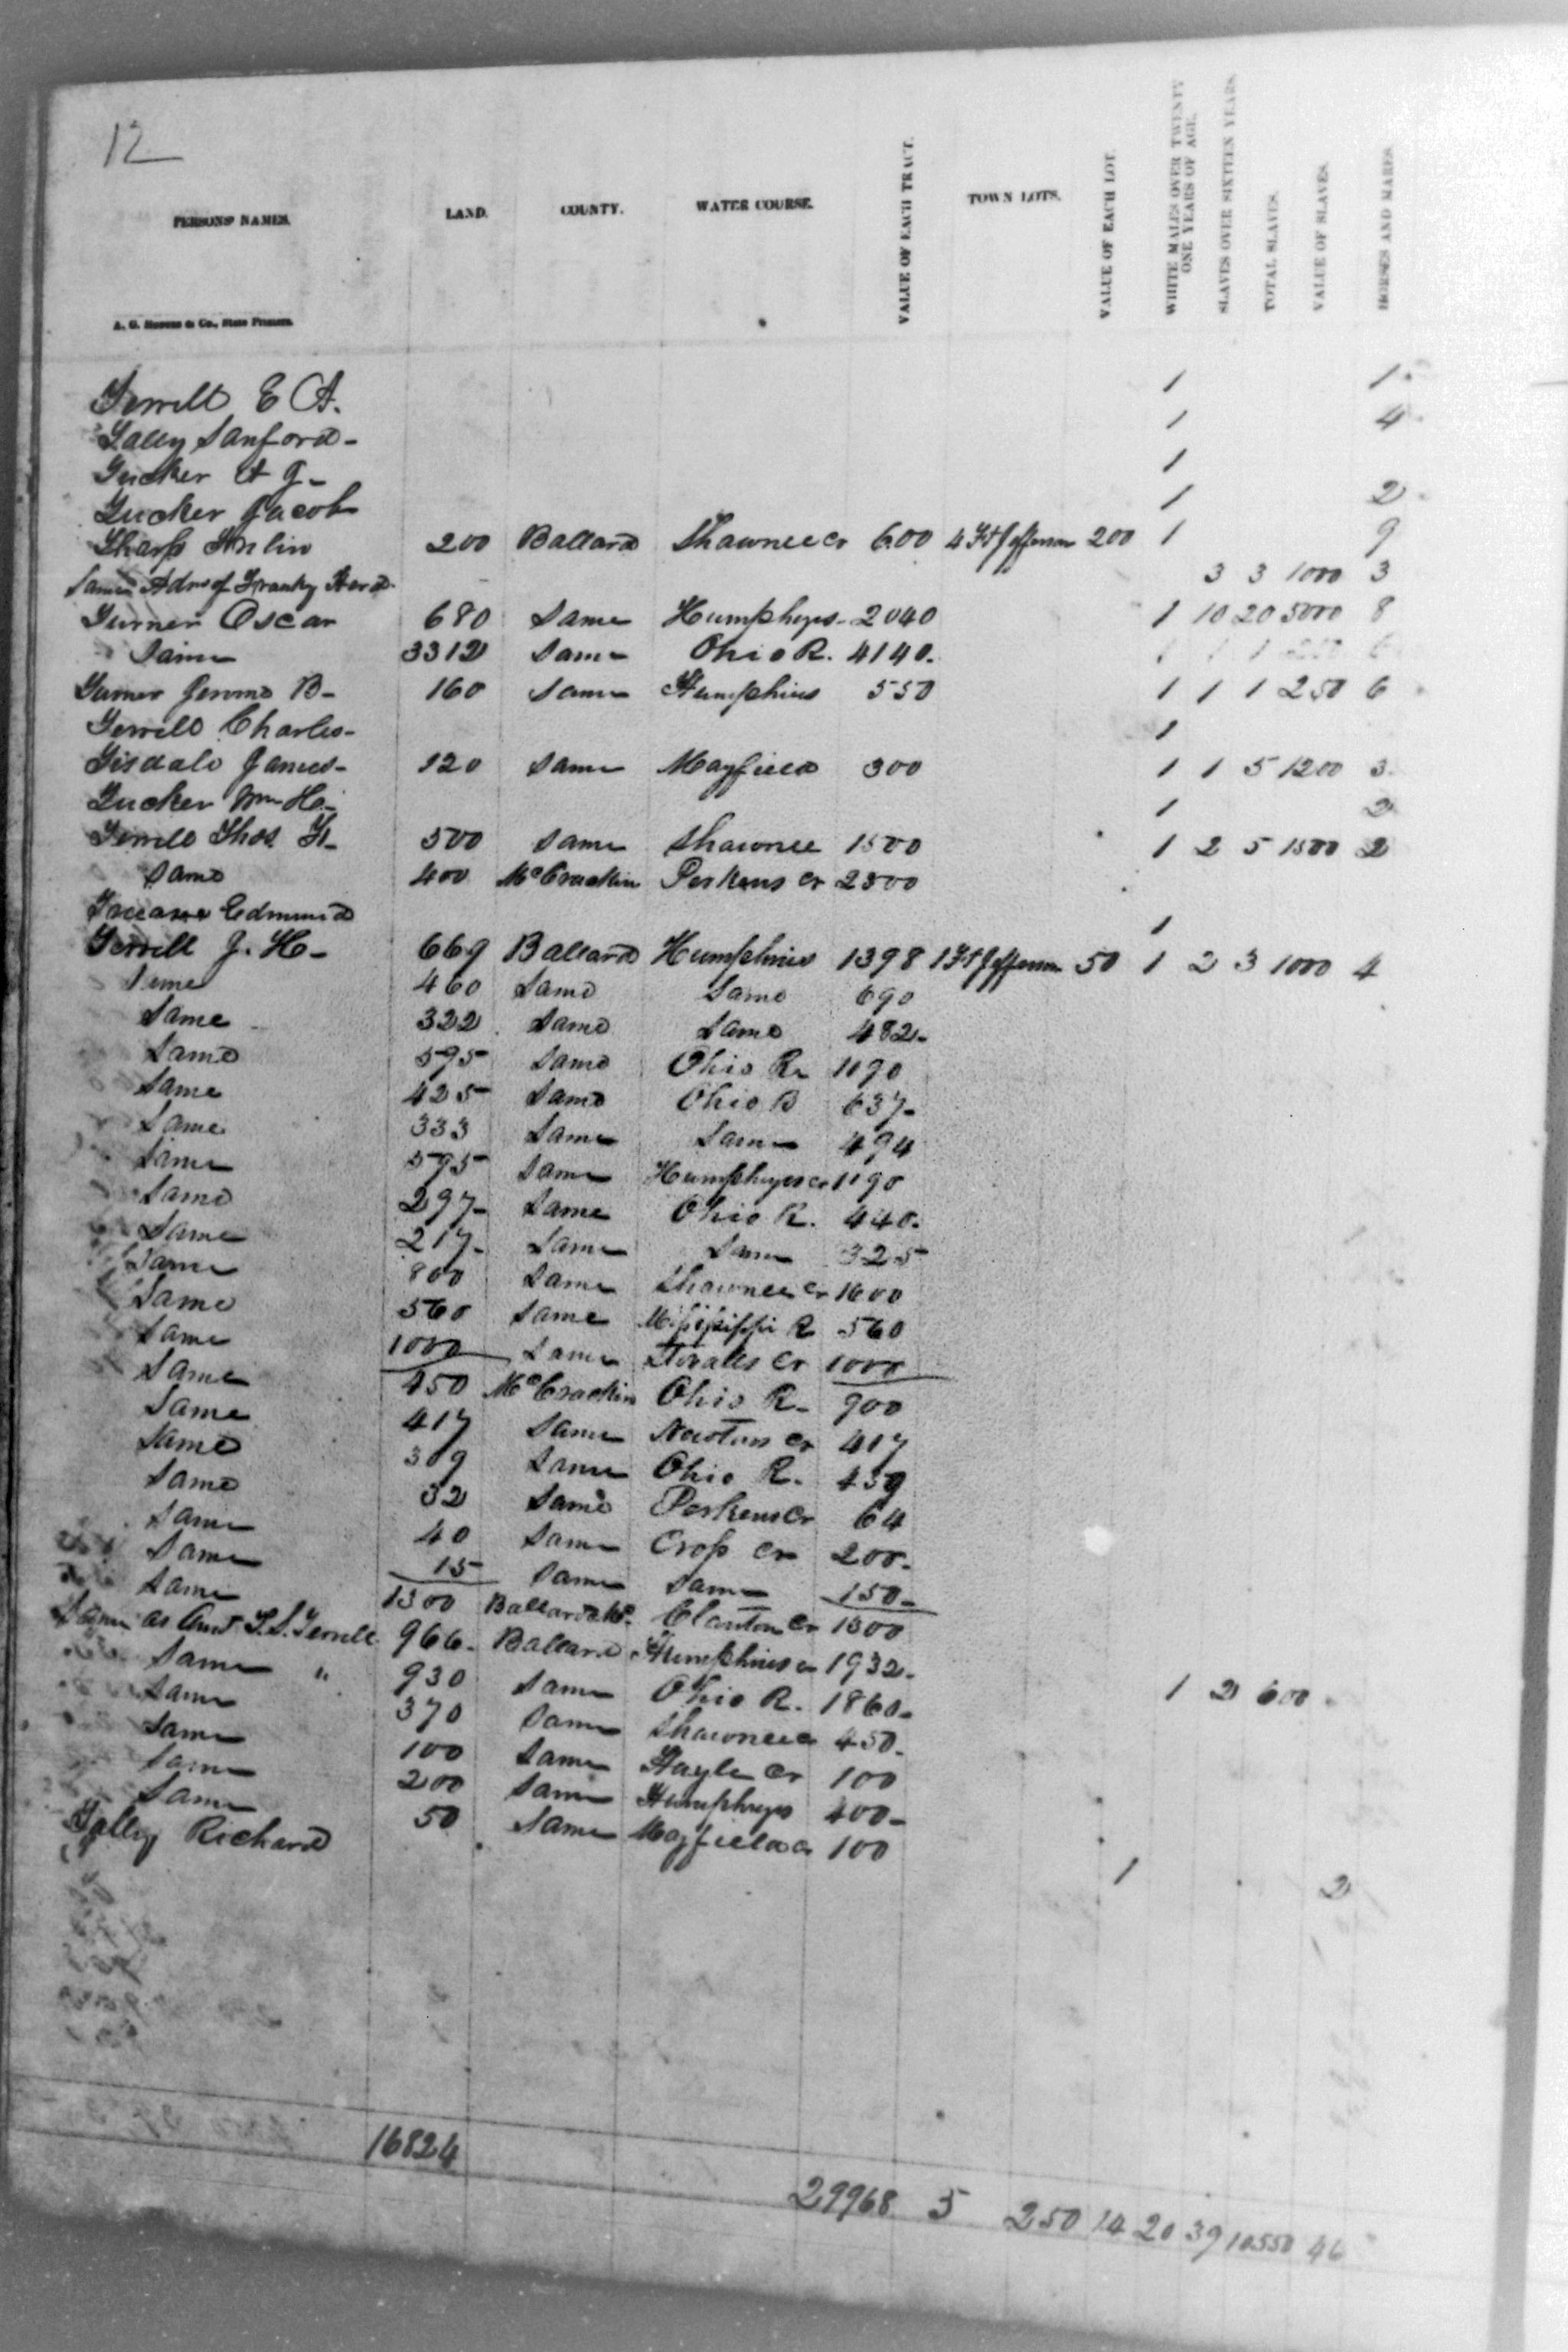 12
PERSONS' NAMES. LAND. COUNTY. WATER COURSE. VALUE OF EACH TRACT. TOWN LOTS. VALUE OF EACH LOT. WHITE MALES OVER TWENTY ONE YEARS OF AGE. SLAVES OVER SIXTEEN YEARS. TOTAL SLAVES. VALUE OF SLAVES. HORSES AND MARES.
A. G. Hodges & Co., State Printers.
Terrill E A. 1 1
Tally Sanford 1 4
Tucker A J 1
Tucker Jacob 1 2
Tharp 200 Ballard Shawnee Cr 600 4 Ft Jefferson 200 1 9
Same Adm of Franky 3 3 1000 3
Turner Oscar 680 Same Humphreys 2040 1 10 20 5000 8
Same 3312 Same Ohio R. 4140
Turner B 160 Same Humphries 550 1 1 1 250 6
Terrill Charles 1
Tisdale James 120 Same Mayfield 300 1 1 5 1200 3
Tucker Wm H. 1 2
Terrill Thos 500 Same Shawnee 1500 1 2 5 1500 2
Same 400 McCrackin Perkins Cr 2500
Edmund 1
Terrill J. H 669 Ballard Humphries 1398 1 Ft Jefferson 50 1 2 3 1000 4
Same 460 Same Same 690
Same 322 Same Same 482
Same 595 Same Ohio R 1190
Same 425 Same Ohio R 637
Same 333 Same Same 494
Same 595 Same Humphreys Cr 1190
Same 297 Same Ohio R. 440
Same 217 Same Same 325
Same 800 Same Shawnee Cr 1600
Same 560 Same Missisippi R 560
Same 1000 Same Stovalls Cr 1000
Same 450 McCrackin Ohio R 900
Same 417 Same Newtons Cr 417
Same 309 Same Ohio R. 459
Same 32 Same Perkens Cr 64
Same 40 Same Crop Cr 200
Same 15 Same Same 150
Same 1300 Ballard Clanton Cr 1300
Same as T. S. Terrill 966 Ballard Humphries Cr 1932
Same " 930 Same Ohio R. 1860 1 2 600
Same 370 Same Shawnee Cr 450
Same 100 Same Cr 100
Same 200 Same Humphreys 400
Same 50 Same Mayfield Cr 100
Tally Richard 1 2
16824 29968 5 250 14 20 39 10550 46